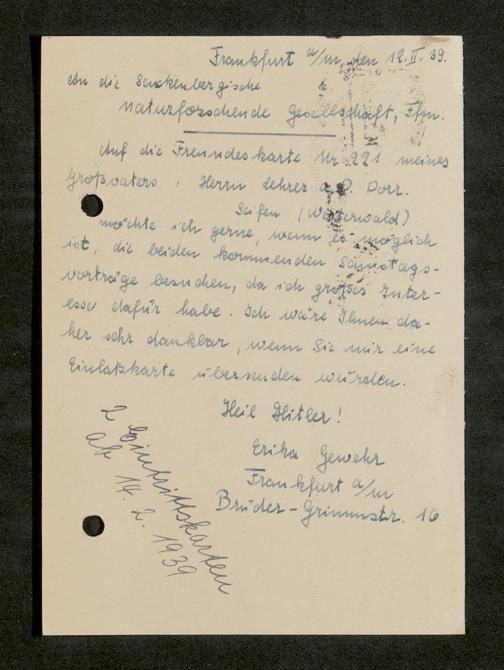 Frankfurt a/m, den 12. II. 39.
An die Senckenbergische
naturforschende Gesellschaft, Ffm.
Auf die Freundeskarte Nr 221 meines
Großvaters : Herrn Lehrer a. D. Dorr.
Seifen (Westerwald)
möchte ich gerne, wenn es möglich
ist, die beiden kommenden Samstags-
vorträge besuchen, da ich großes Inter-
esse dafür habe. Ich wäre Ihnen da-
her sehr dankbar, wenn Sie mir eine
Einlaßkarte übersenden würden.
Heil Hitler!
Erika Gewehr
Frankfurt a/m
Brüder-Grimmstr. 16
2 Eintrittskarten
ab 14. 2. 1939